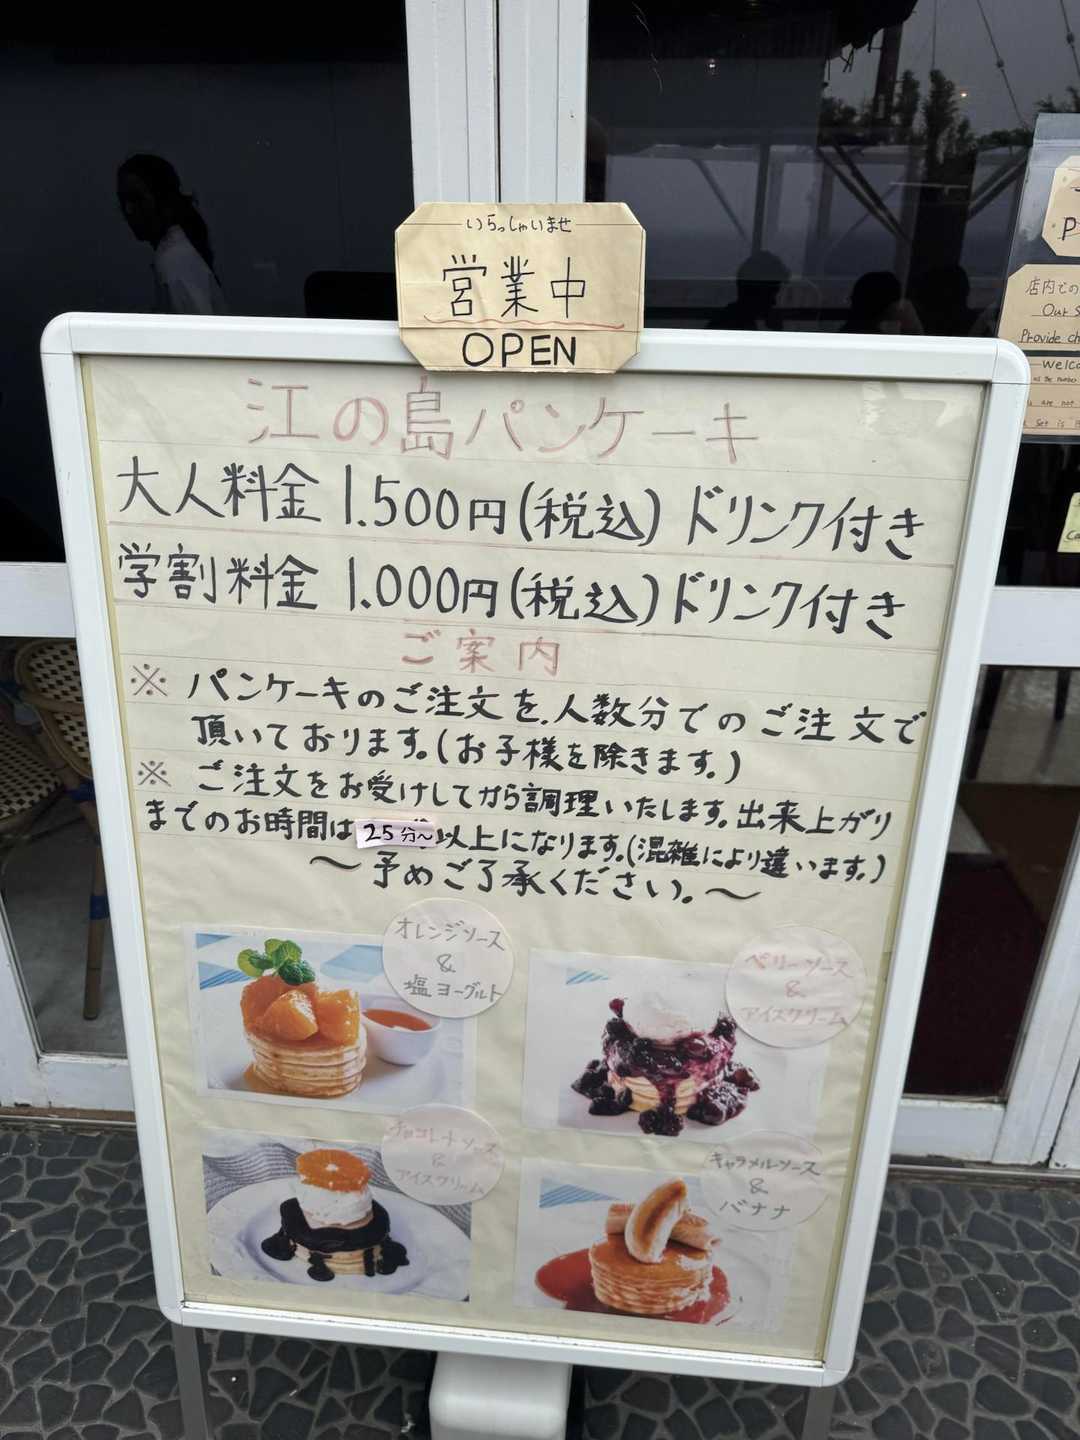 いらっしゃいませ
営業中
OPEN
江の島パンケーキ
大人料金 1.500円(税込)ドリンク付き
学割料金 1.000円(税込)ドリンク付き
ご案内
※ パンケーキのご注文を、人数分でのご注文で
頂いております。(お子様を除きます。)
※ ご注文をお受けしてから調理いたします。出来上がり
までのお時間は25分〜以上になります。(混雑により違います。)
〜予めご了承ください。〜
オレンジソース
&
塩ヨーグルト
ベリーソース
&
アイスクリーム
チョコレートソース
&
アイスクリーム
キャラメルソース
&
バナナ
P
店内での
Our
Provide
Welco
are not
Set is